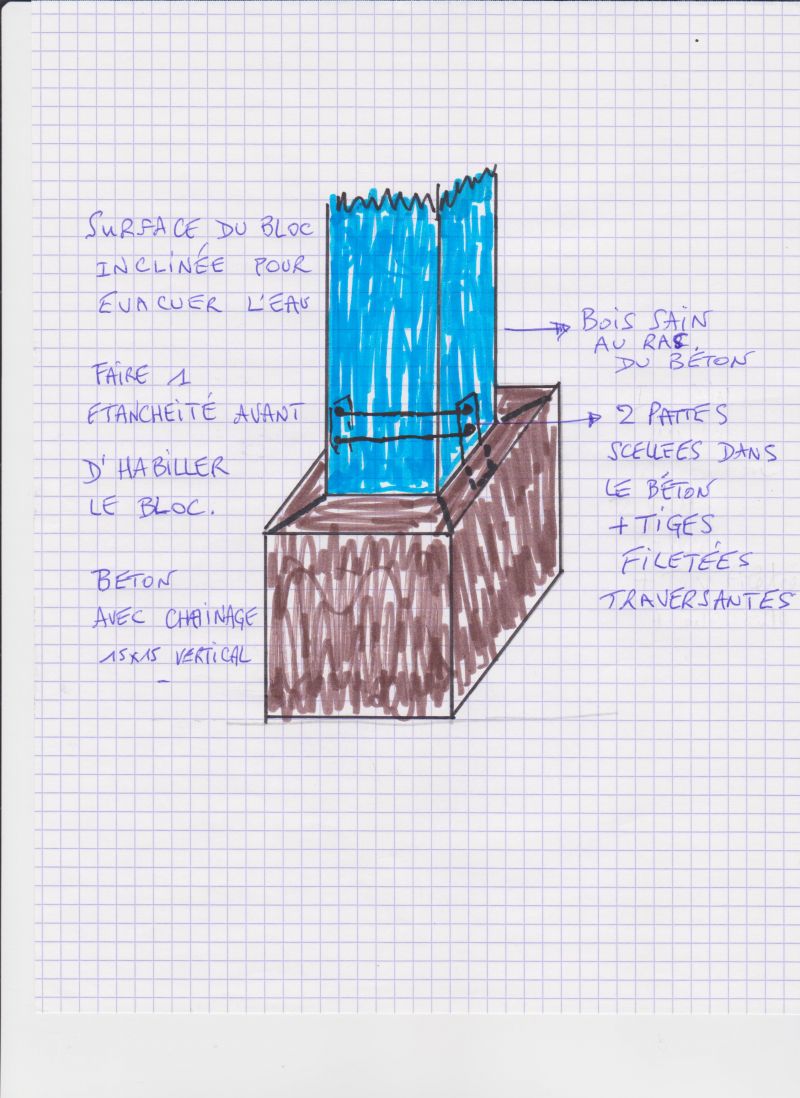 SURFACE DU BLOC
INCLINÉE POUR
ÉVACUER L'EAU
FAIRE 1
ETANCHEITÉ AVANT
D'HABILLER
LE BLOC.
BETON
AVEC CHAINAGE
15x15 VERTICAL
BOIS SAIN
AU RAS
DU BÉTON
2 PATTES
SCELLEES DANS
LE BÉTON
+ TIGES
FILETÉES
TRAVERSANTES